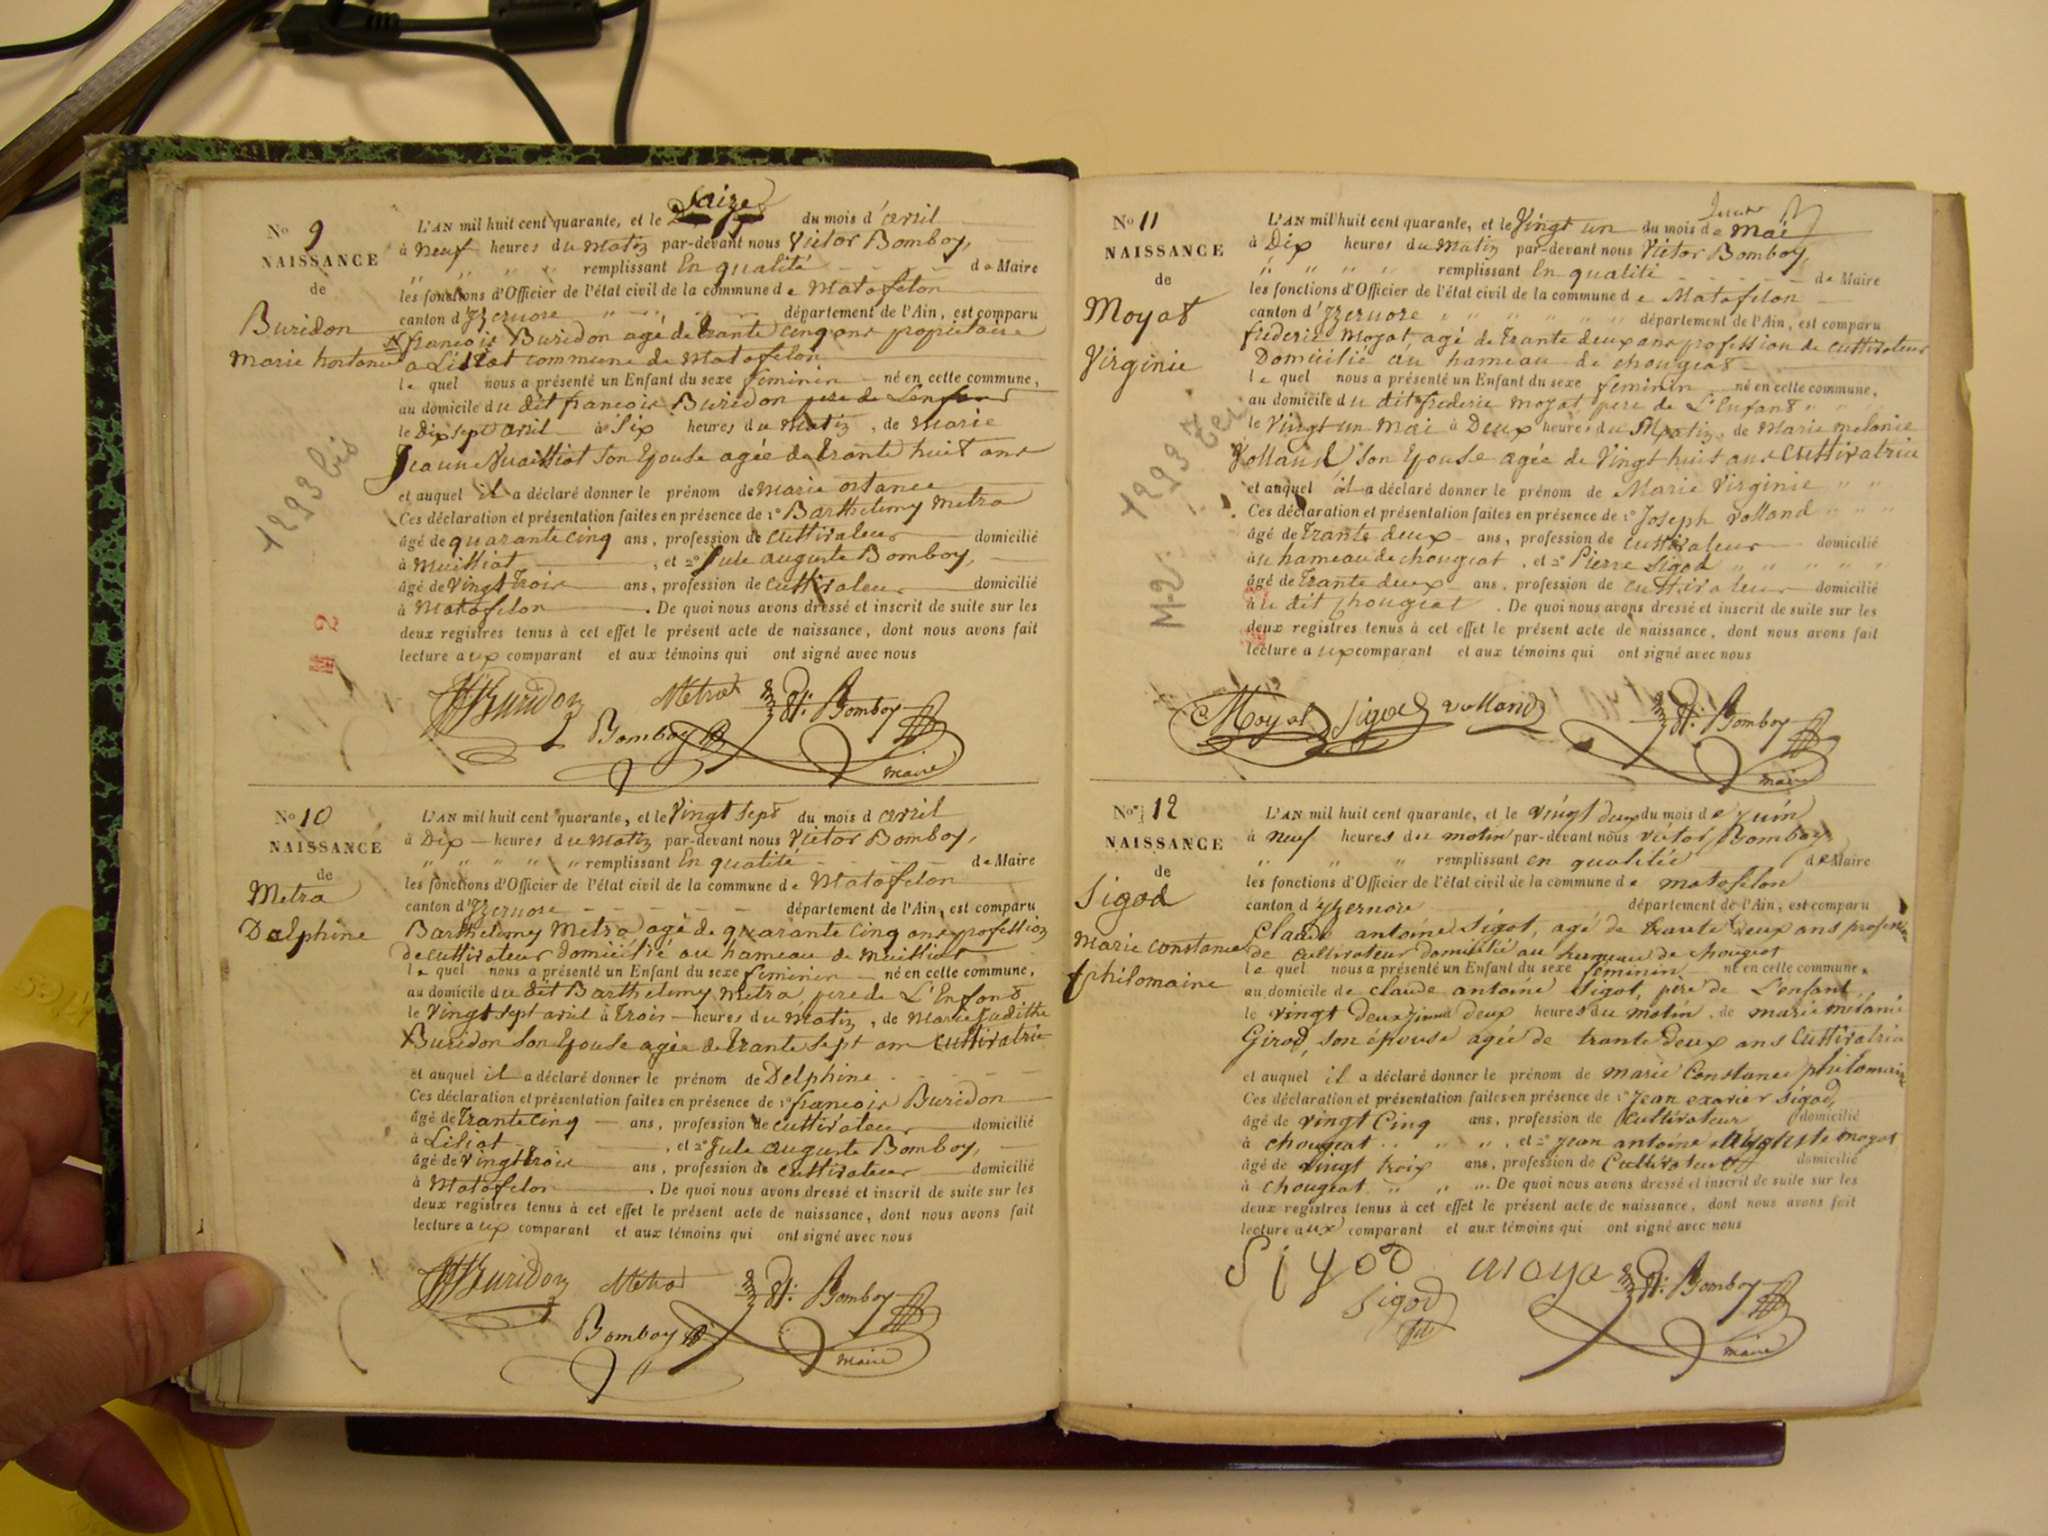 No 9
NAISSANCE
de
Buridon
Marie hortance
1293 bis
M 2
L'AN mil huit cent quarante, et le Seize du mois d'avril
à Neuf heures du Matin par-devant nous Victor Bomboy,
" " " " remplissant En qualité de Maire
les fonctions d'Officier de l'état civil de la commune de Matafelon
canton d'Yzernore " " " " département de l'Ain, est comparu
françois Buridon agé de trante cinq ans propriétaire
a Lisiat commune de Matafelon
le quel nous a présenté un Enfant du sexe feminin né en cette commune,
au domicile du dit françois Buridon pere de Lenfant
le Dix sept avril à Six heures du Matin, de Marie
Jeanne son Epouse agée de trante huit ans
et auquel il a déclaré donner le prénom de Marie ortance
Ces déclaration et présentation faites en présence de 1° Barthelemy Metra
âgé de quarante cinq ans, profession de cultivateur domicilié
à Muittiat, et 2° Jule auguste Bomboy,
âgé de vingt trois ans, profession de cultivateur domicilié
à Matafelon. De quoi nous avons dressé et inscrit de suite sur les
deux registres tenus à cet effet le présent acte de naissance, dont nous avons fait
lecture aux comparant et aux témoins qui ont signé avec nous
Buridon Metra Bomboy
Bomboy
maire
No 10
NAISSANCE
de
Metra
Delphine
L'AN mil huit cent quarante, et le Vingt sept du mois d avril
à Dix heures du Matin par-devant nous Victor Bomboy,
" " " " " remplissant En qualité de Maire
les fonctions d'Officier de l'état civil de la commune de Matafelon
canton d'Yzernore département de l'Ain, est comparu
Barthelemy Metra agé de quarante cinq ans profession
de cultivateur domicilié au hameau de Muittiat
le quel nous a présenté un Enfant du sexe feminin né en cette commune,
au domicile du dit Barthelemy Metra, pere de L'Enfant
le Vingt sept avril à trois heures du Matin, de Marie Judithe
Buridon son Epouse agée de trante sept ans cultivatrice
et auquel il a déclaré donner le prénom de Delphine
Ces déclaration et présentation faites en présence de 1° françois Buridon
âgé de trante cinq ans, profession de cultivateur domicilié
à Lisiat, et 2° Jule auguste Bomboy,
âgé de vingt trois ans, profession de cultivateur domicilié
à Matafelon. De quoi nous avons dressé et inscrit de suite sur les
deux registres tenus à cet effet le présent acte de naissance, dont nous avons fait
lecture aux comparant et aux témoins qui ont signé avec nous
Buridon Metra Bomboy
Bomboy
maire
No 11
NAISSANCE
de
Moyat
Virginie
1293 ter
M-2
L'AN mil huit cent quarante, et le Vingt un du mois de Mai
à Dix heures du Matin par-devant nous Victor Bomboy,
" " " " remplissant En qualité de Maire
les fonctions d'Officier de l'état civil de la commune de Matafelon
canton d'Yzernore " " " " " département de l'Ain, est comparu
frederic Moyat, agé de trante deux ans profession de cultivateur
Domicilié au hameau de chougeat
le quel nous a présenté un Enfant du sexe feminin né en cette commune,
au domicile du dit frederic Moyat pere de L'Enfant " "
le Vingt un Mai à Deux heures du Matin, de Marie melanie
Volland son Epouse agée de Vingt huit ans Cultivatrice
et auquel il a déclaré donner le prénom de Marie Virginie " "
Ces déclaration et présentation faites en présence de 1° Joseph Volland " " "
âgé de trante deux ans, profession de cultivateur domicilié
à au hameau de chougeat, et 2° Pierre Sigod " " " " "
âgé de trante deux ans, profession de cultivateur domicilié
à u dit chougeat. De quoi nous avons dressé et inscrit de suite sur les
deux registres tenus à cet effet le présent acte de naissance, dont nous avons fait
lecture aux comparant et aux témoins qui ont signé avec nous
Moyat Sigod volland Bomboy
maire
No 12
NAISSANCE
de
Sigod
Marie constance
philomaine
L'AN mil huit cent quarante, et le vingt deux du mois de juin
à neuf heures du matin par-devant nous victor Bomboy
" " " remplissant en qualitée de Maire
les fonctions d'Officier de l'état civil de la commune de matafelon
canton d'yzernore département de l'Ain, est comparu
Claude antoine Sigot, agé de trante deux ans profession
de cultivateur domicilié au hameau de chougeat
le quel nous a présenté un Enfant du sexe féminin né en cette commune,
au domicile de claude antoine Sigot, pere de Lenfant
le vingt deux juin à deux heures du matin, de marie mélanie
Girod, son épouse agée de trante deux ans Cultivatrice
et auquel il a déclaré donner le prénom de marie Constance philomaine
Ces déclaration et présentation faites en présence de 1° Jean exavier Sigod,
âgé de vingt Cinq ans, profession de Cultivateur domicilié
à chougeat " " ", et 2° jean antoine auguste moyat
âgé de vingt trois ans, profession de Cultivateur domicilié
à chougeat " " ". De quoi nous avons dressé et inscrit de suite sur les
deux registres tenus à cet effet le présent acte de naissance, dont nous avons fait
lecture aux comparant et aux témoins qui ont signé avec nous
Sigod moya Bomboy
Sigod
fils
maire